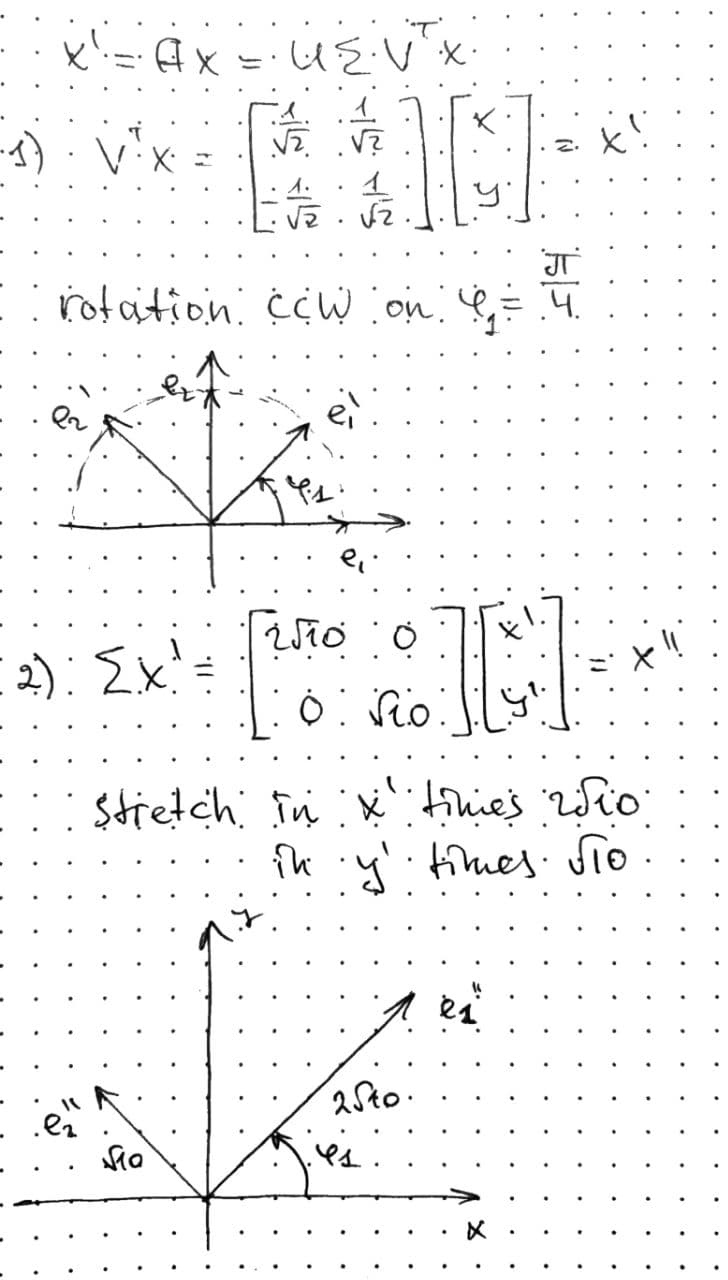 x' = A x = U Σ V^T x
1) V^T x = [1/√2 1/√2; -1/√2 1/√2] [x; y] = x'
rotation CCW on φ₁ = π/4
e₂' e₂ e₁'
φ₁
e₁
2) Σ x' = [2√10 0; 0 √10] [x'; y'] = x''
stretch in x' times 2√10
in y' times √10
y
e₁''
e₂'' 2√10
√10 φ₁
x